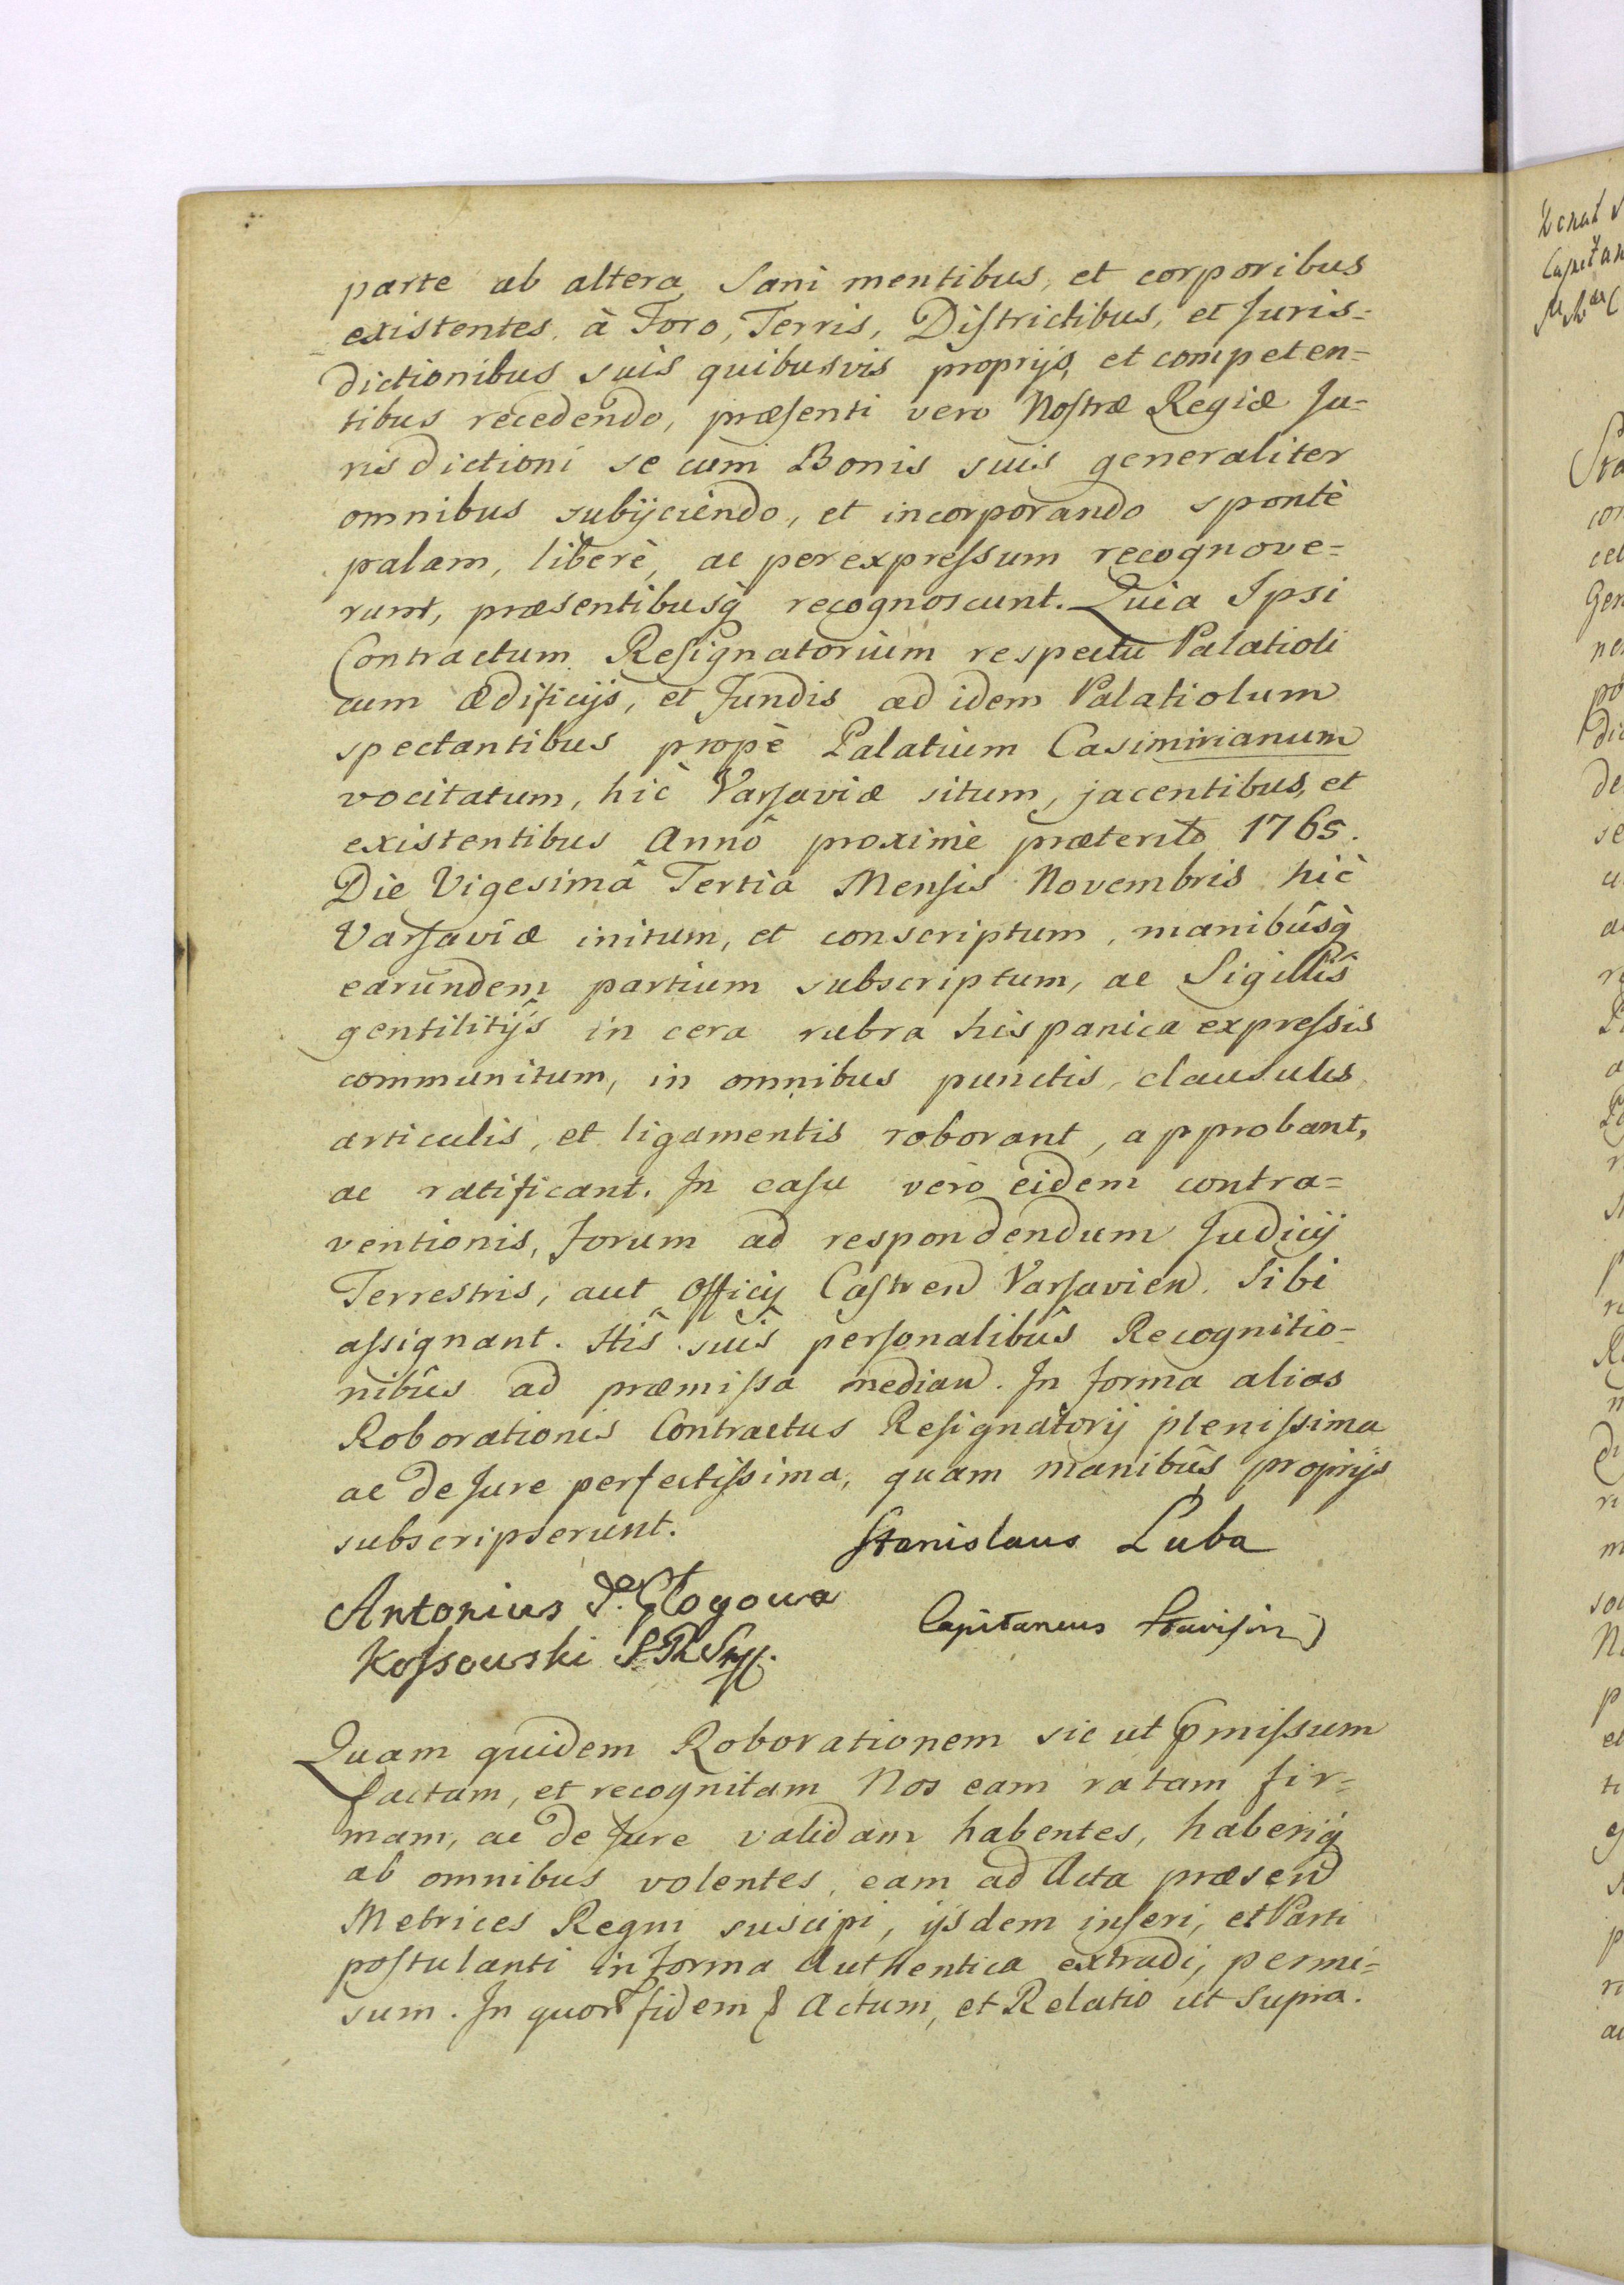 parte ab altera Sani mentibus, et corporibus
existentes, à Foro, Terris, Diſtrictibus, et Juris=
dictionibus suis quibusvis proprijs, et competen=
tibus recedendo, præſenti vero Noſtræ Regiæ Ju=
risdictioni se cum Bonis suis generaliter
omnibus subijciendo, et incorporando spontè
palam, liberè, ac per expreſsum recognove=
runt, præsentibusq̀ recognoscunt. Quia Ipsi
Contractum Reſignatorium respectu Palatioli
cum ædificijs, et Fundis ad idem Palatiolum
spectantibus propè Palatium Casimirianum
vocitatum, hic Varſaviæ situm, jacentibus, et
existentibus Annô proximè præterito 1765.
Die Vigesimâ Tertia Menſis Novembris hic
Varſaviæ initum, et conscriptum, manibûsq̀
earundem partium subscriptum, ac Sigillîs
gentilitijs in cera rubra hispanica expreſsis
communitum, in omnibus punctis, clausulis
articulis, et ligamentis roborant, approbant,
ac ratificant. In caſu verò eidem contra=
ventionis, Forum ad respondendum Judicij
Terrestris, aut Officij Caſtren Varſavien. Sibi
aſsignant. Hîs suîs perſonalibûs Recognitio=
nibûs ad præmiſsa median. In forma alias
Roborationis Contractus Reſignatorij pleniſsima
ac de Jure perfectiſsima, quam manibûs proprijs
subscripserunt. Stanislaus Luba
Antonius de Głogowa Capitaneus Stavisin
Koſsowski
Quam quidem Roborationem sic ut p̃miſsum
factam, et recognitam Nos eam ratam fir=
mam, ac de Jure validam habentes, haberiq̀
ab omnibus volentes, eam ad Acta præsen
Metrices Regni suscipi, ijsdem inſeri, et Parti
poſtulanti in forma Authentica extradi, permi=
sum. In quor fidem Actum, et Relatio ut Supra.